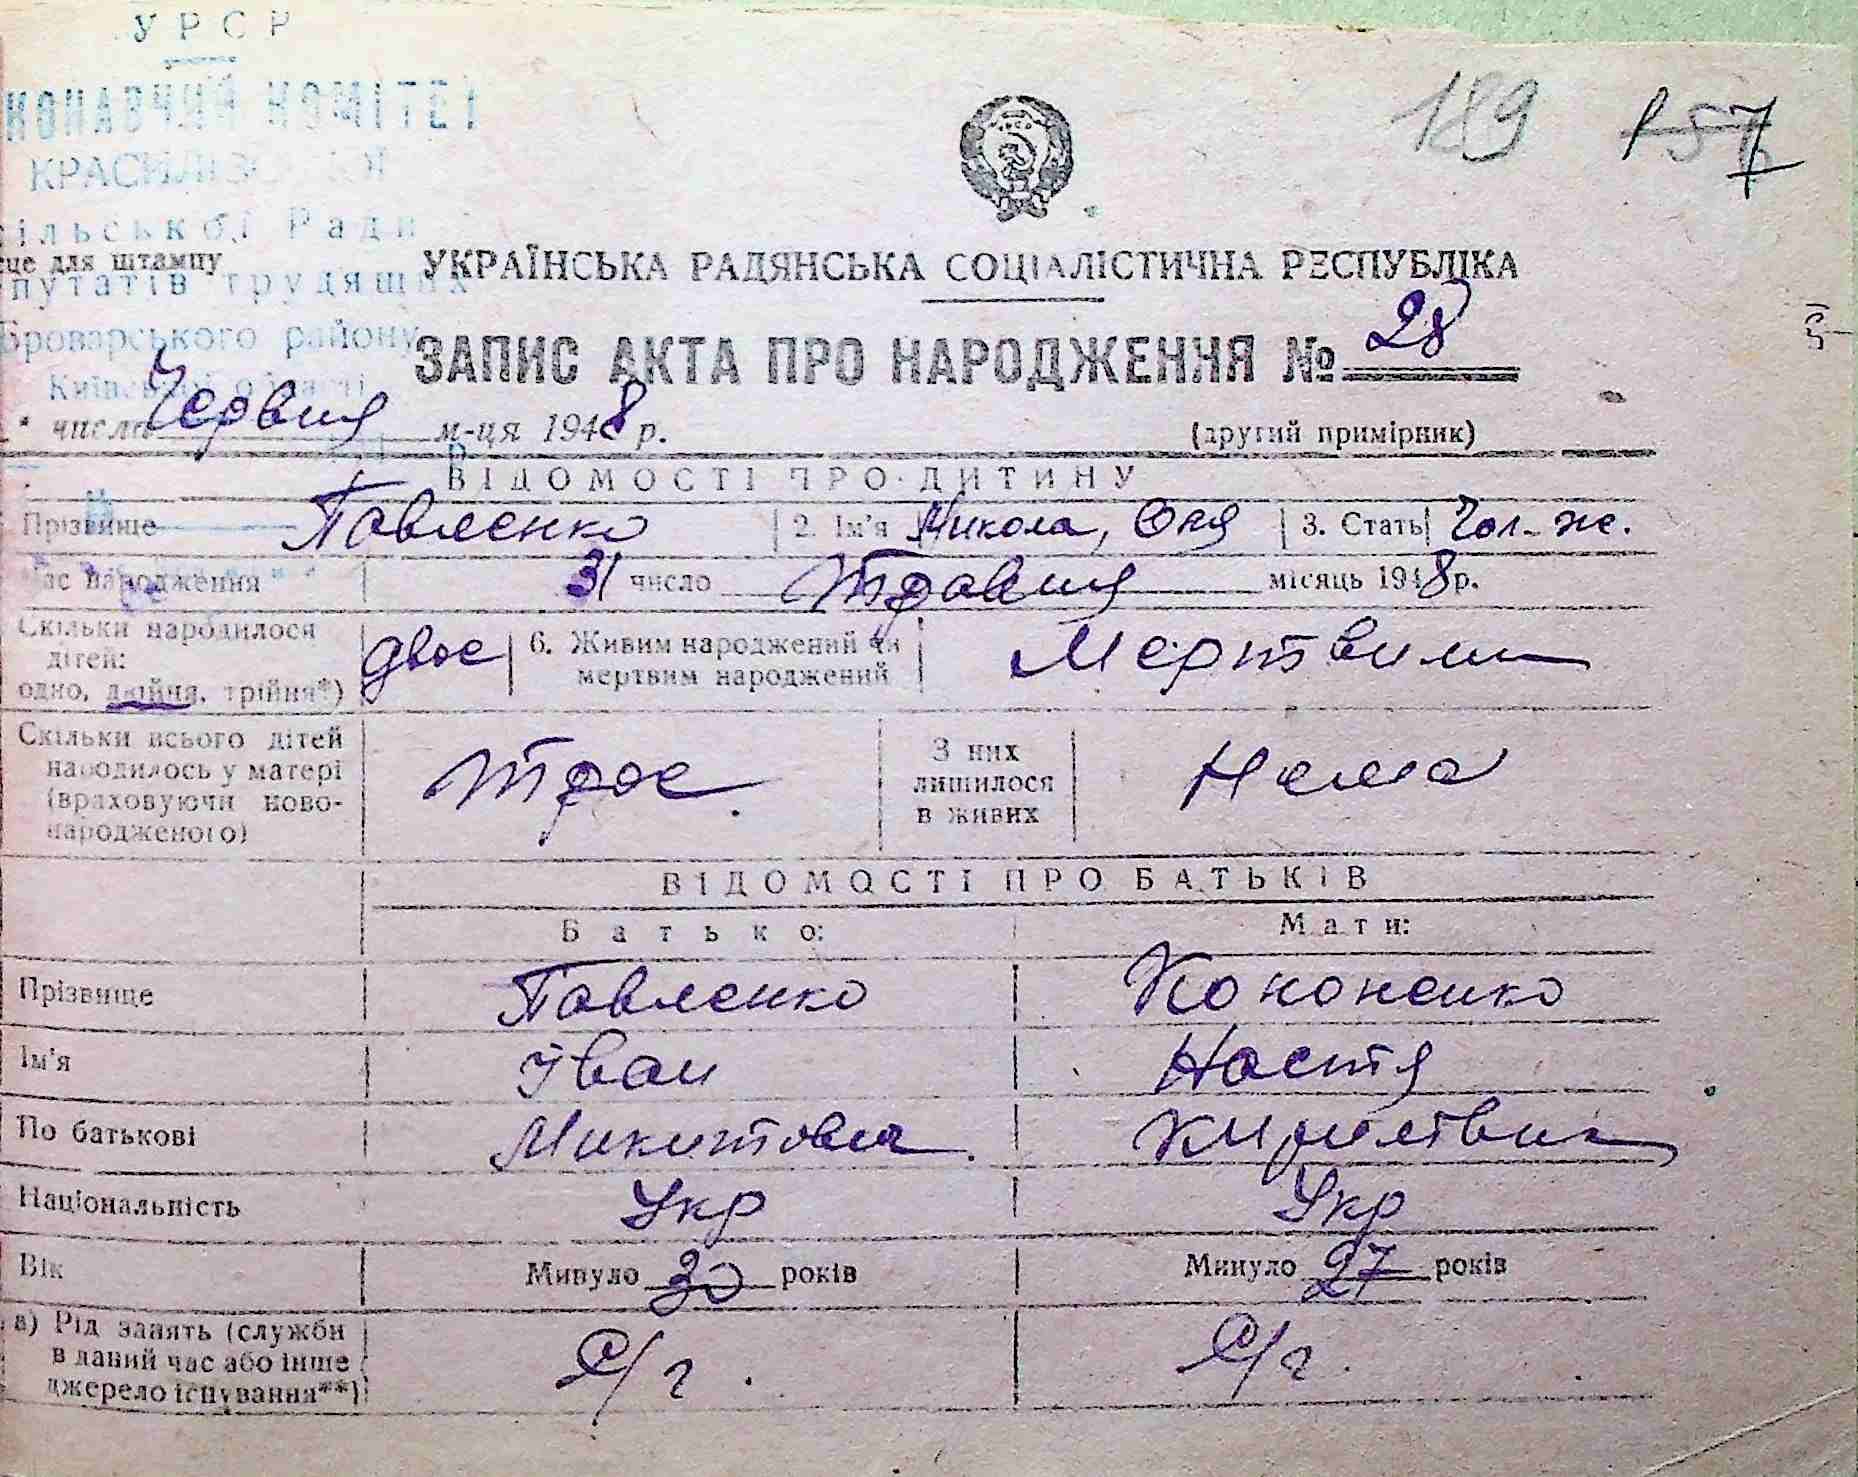 УРСР
КОНАВЧИЙ КОМІТЕТ
КРАСИЛІВСЬКОЇ
сільської Ради
путатів трудящих
Броварського району
Київської області
189 157
УКРАЇНСЬКА РАДЯНСЬКА СОЦІАЛІСТИЧНА РЕСПУБЛІКА
сце для штампу
ЗАПИС АКТА ПРО НАРОДЖЕННЯ № 28
числа Червня м-ця 1948 р.
(другий примірник)
ВІДОМОСТІ ПРО ДИТИНУ
Прізвище Павленко 2. Ім'я Микола, Оля 3. Стать Чол-же.
час народження 31 число Травня місяць 1948 р.
Скільки народилося дітей: одно, двійня, трійня*) двоє 6. Живим народжений чи мертвим народжений Мертвими
Скільки всього дітей народилось у матері (враховуючи новонародженого) троє З них лишилося в живих Нема
ВІДОМОСТІ ПРО БАТЬКІВ
Батько: Мати:
Прізвище Павленко Кононенко
Ім'я Іван Настя
По батькові Микитович Кирилівна
Національність Укр Укр
Вік Минуло 30 років Минуло 27 років
а) Рід занять (служби в даний час або інше джерело існування**) с/г. с/г.